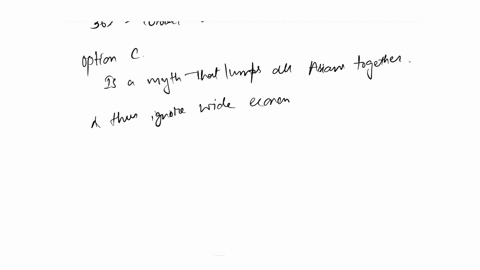 option C.
Is a myth that lumps all Asians together.
& thus ignore wide econom